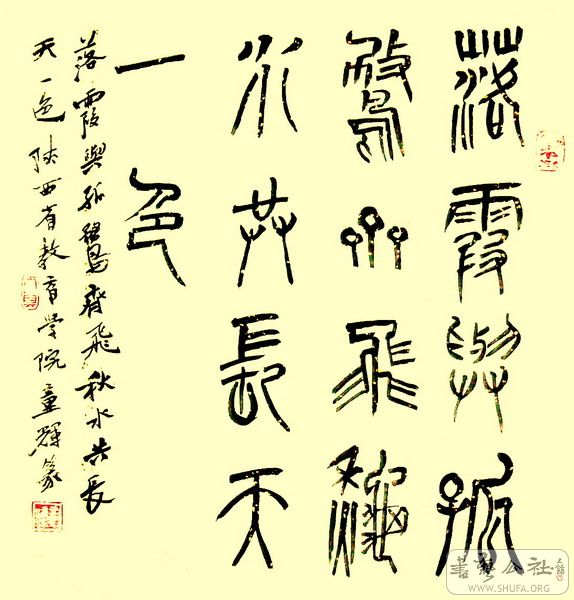 落霞與孤
鶩齊飛秋
水共長天
一色
落霞與孤鶩齊飛秋水共長
天一色陕西省教育學院童輝篆
書藝公社
WWW.SHUFA.ORG